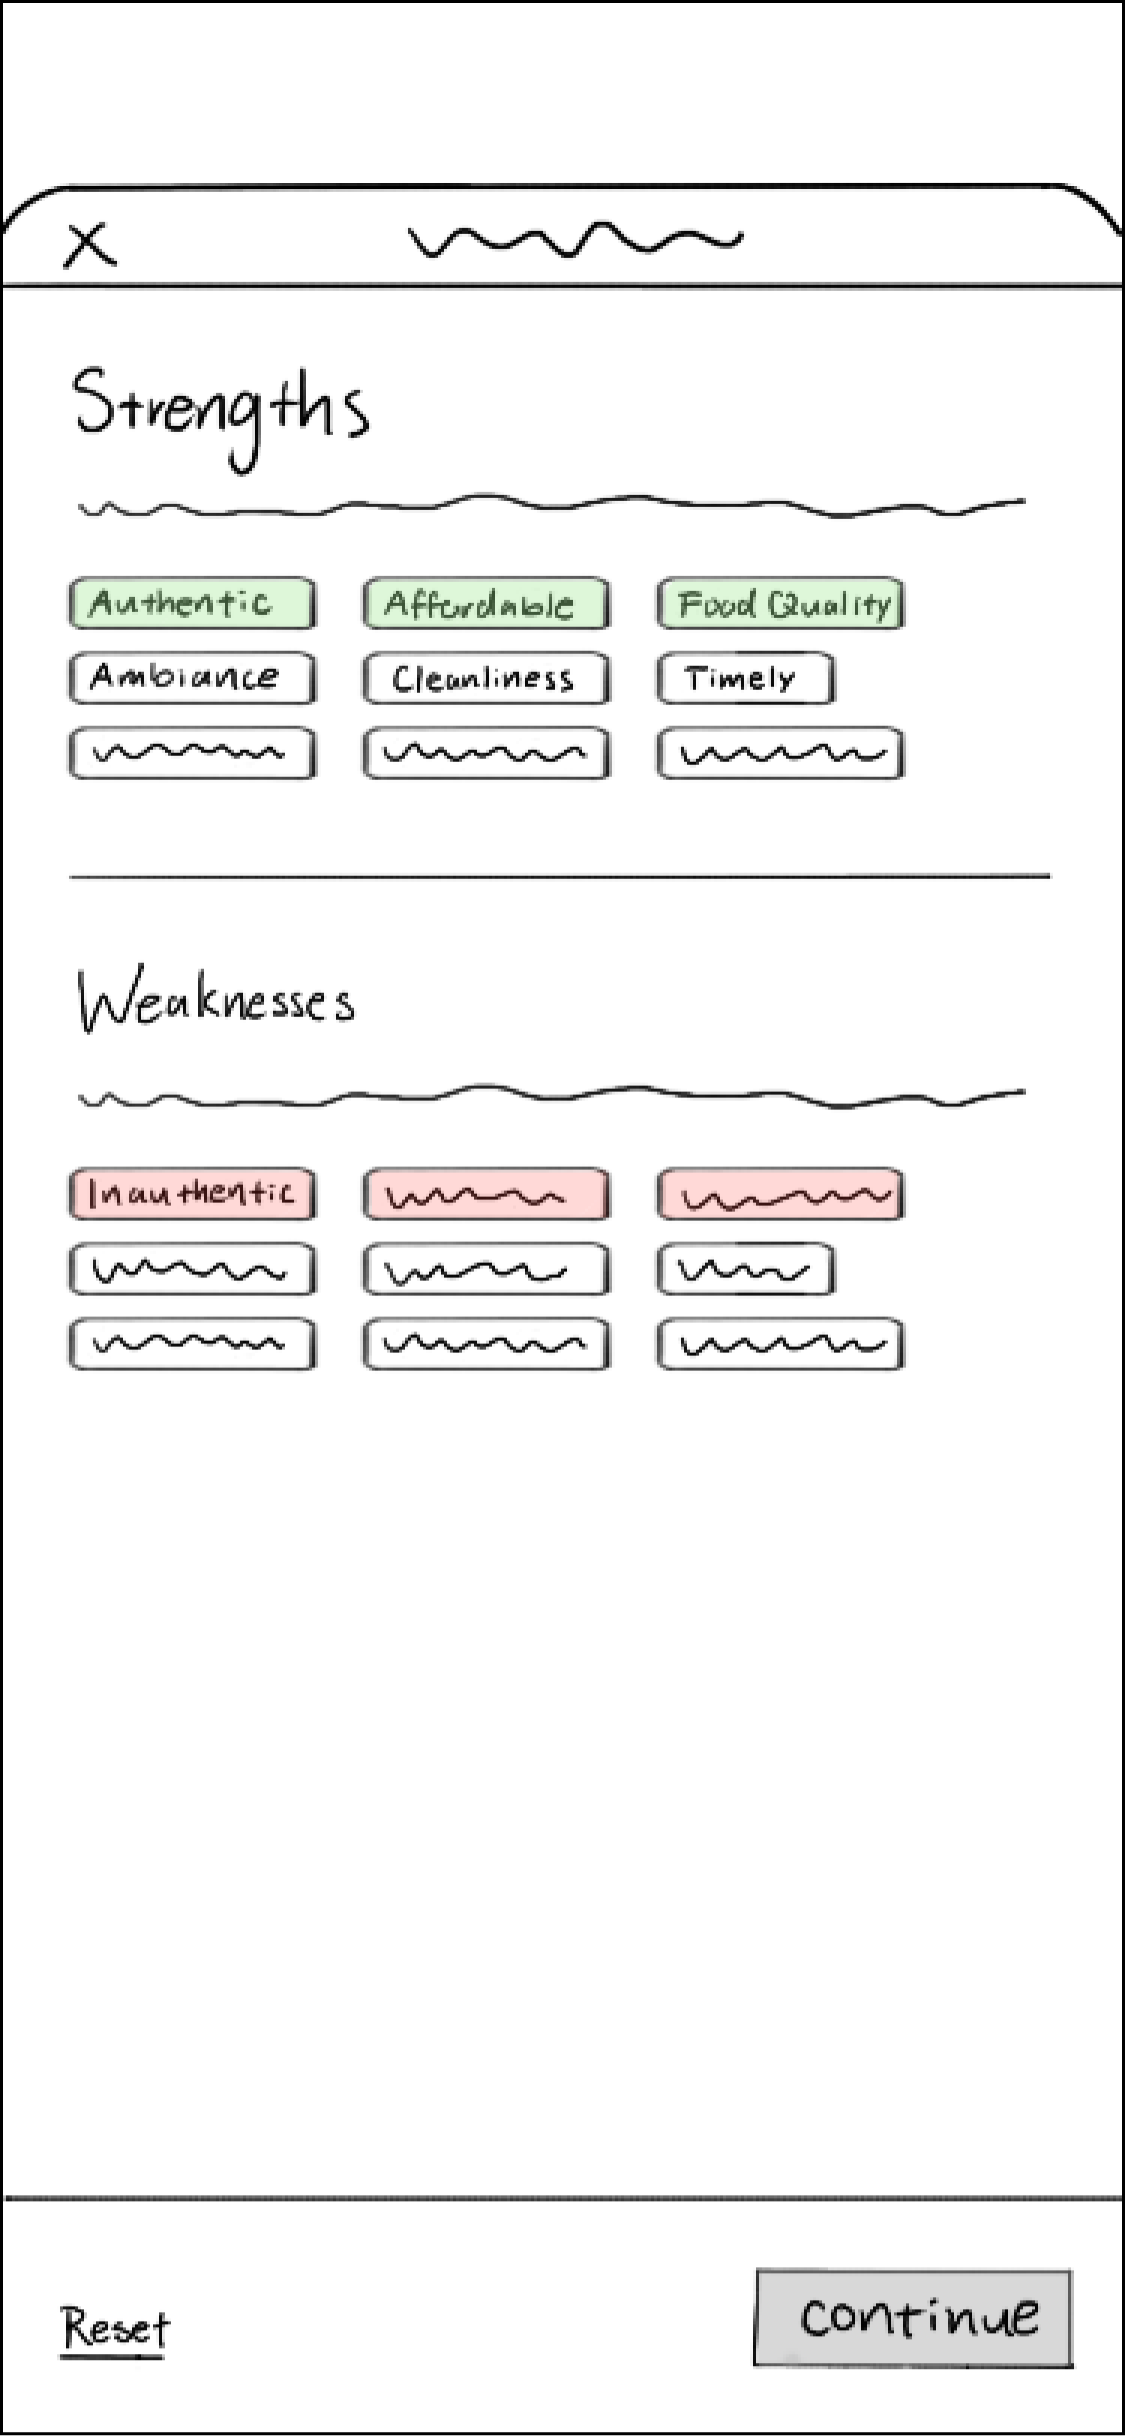 X
Strengths
Authentic Affordable Food Quality
Ambiance Cleanliness Timely
Weaknesses
Inauthentic
Reset
Continue